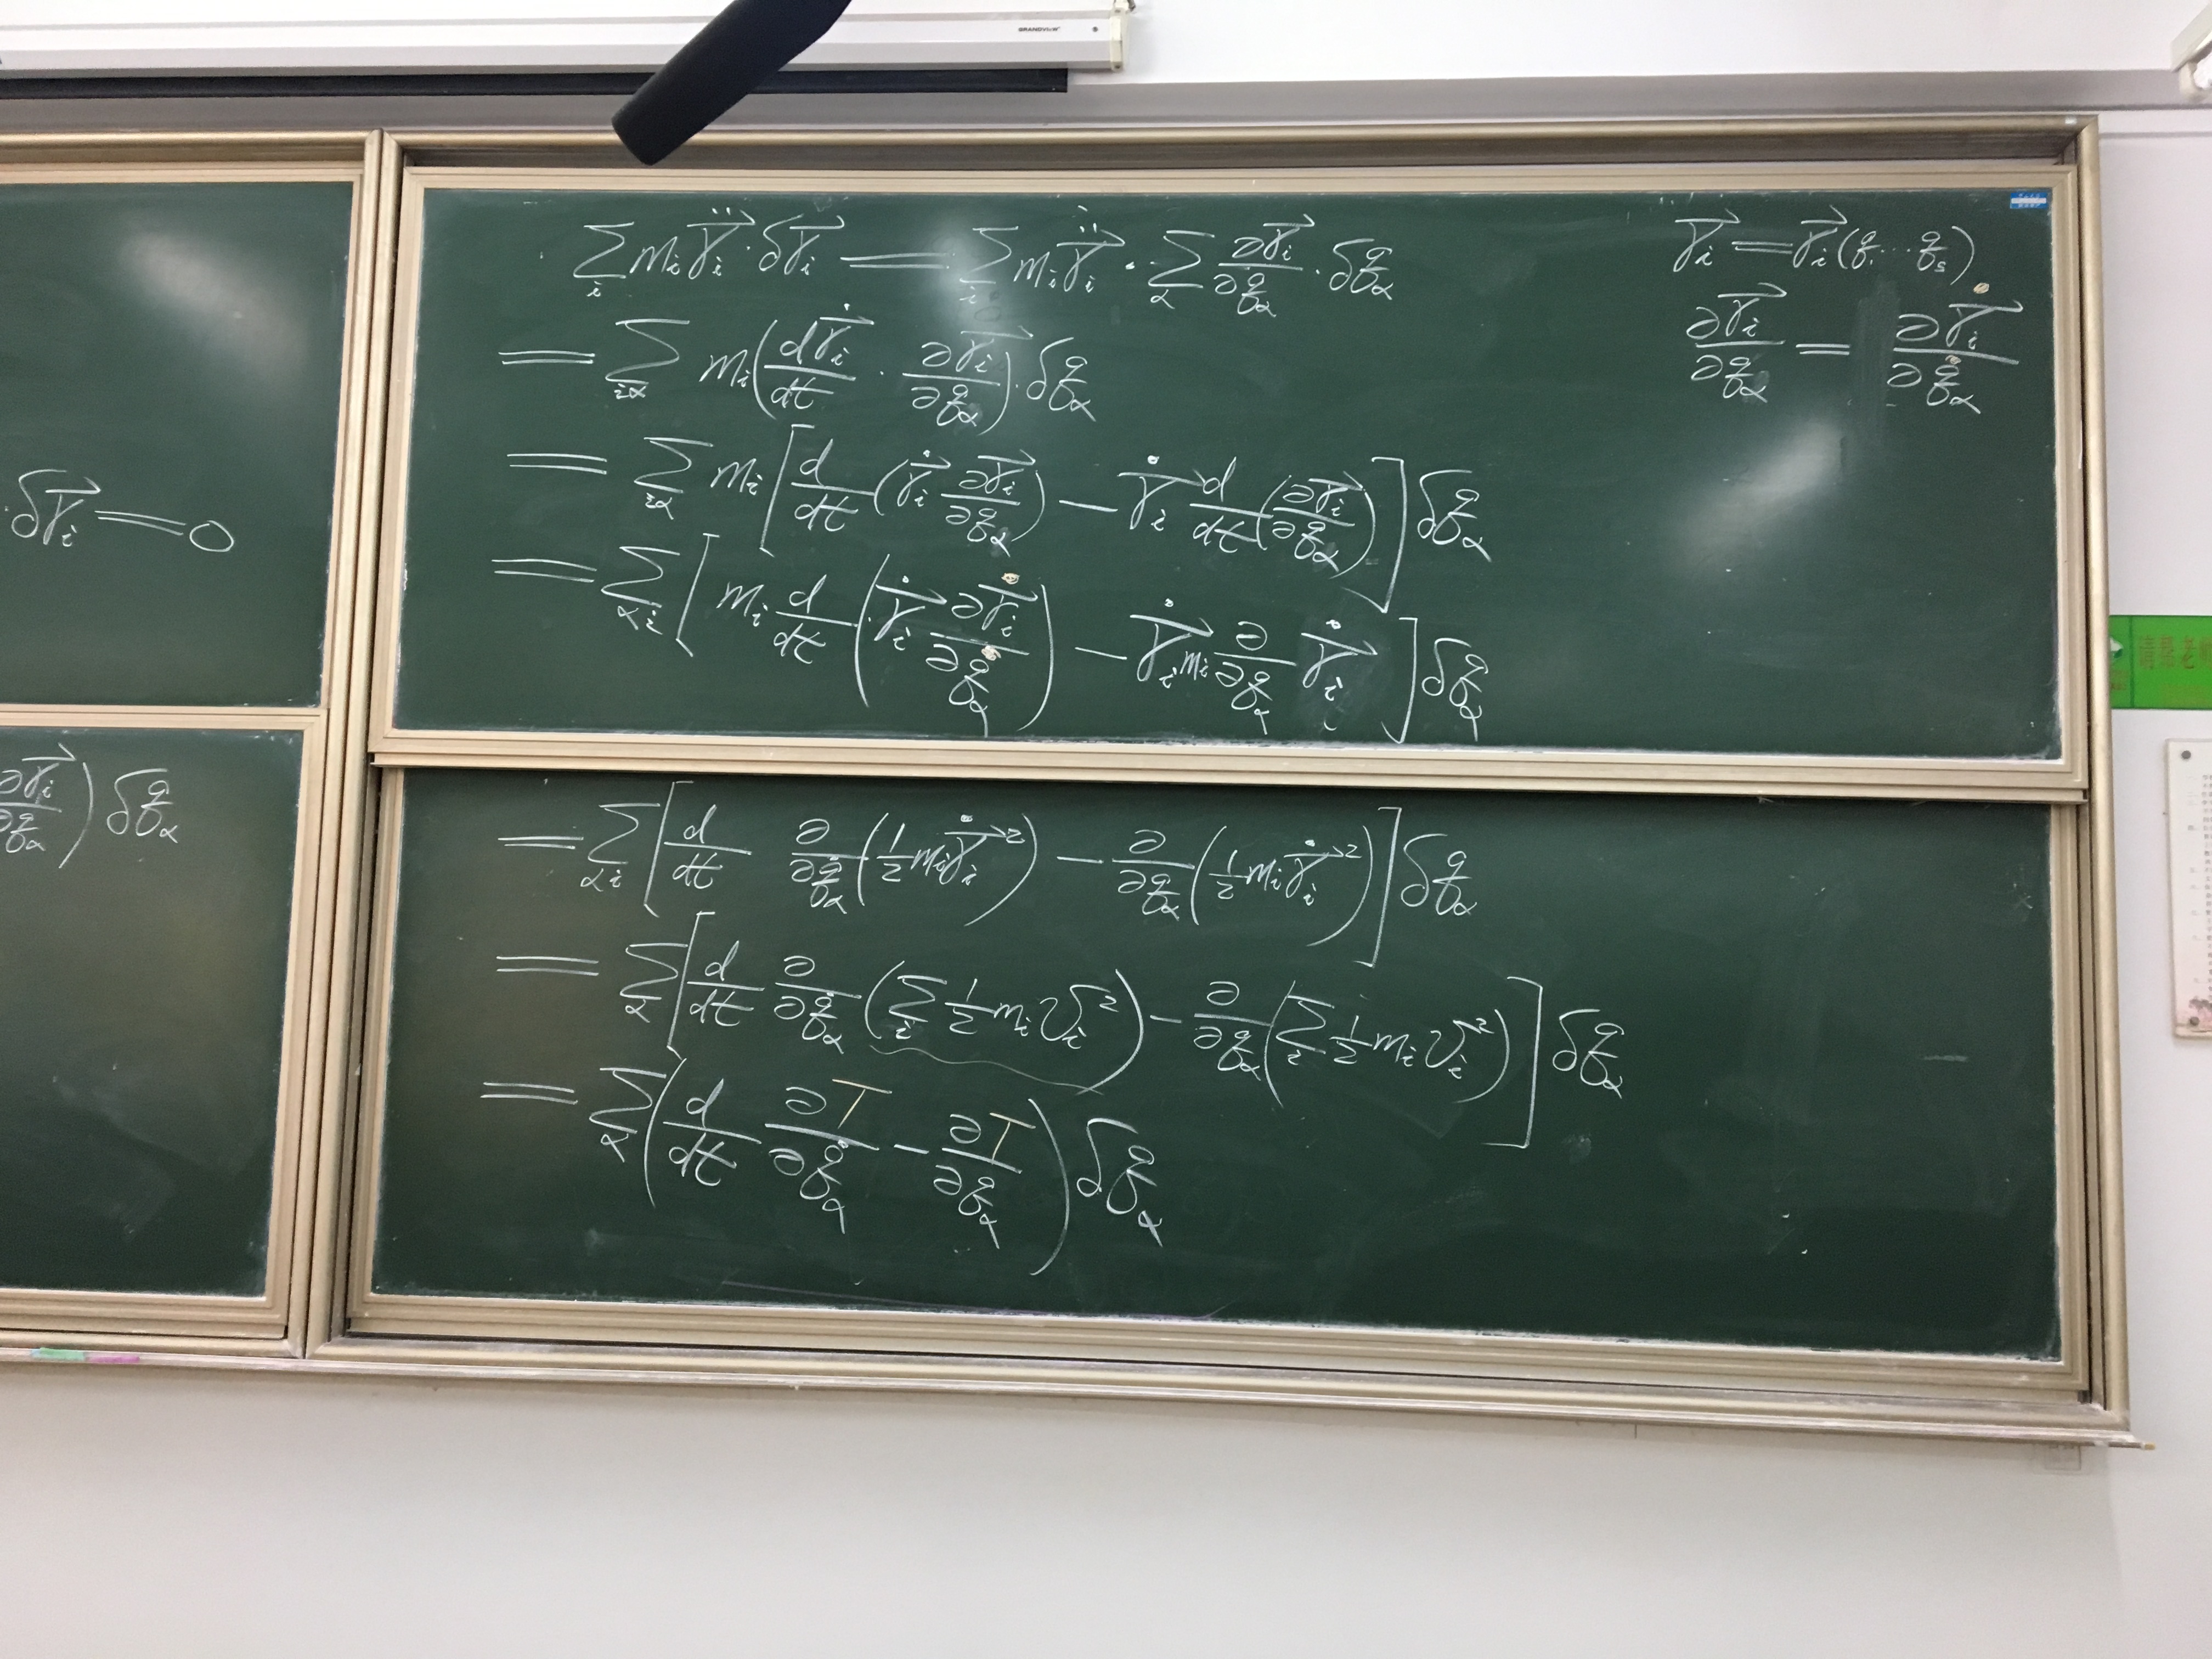 GRANDVIEW
·δr⃗ᵢ = 0
∂r⃗ᵢ/∂q_α) δq_α
∑ᵢ mᵢ r⃗̈ᵢ · δr⃗ᵢ = ∑ᵢ mᵢ r⃗̈ᵢ · ∑_α ∂r⃗ᵢ/∂q_α · δq_α
= ∑_{iα} mᵢ (dr⃗̇ᵢ/dt · ∂r⃗ᵢ/∂q_α) · δq_α
= ∑_{iα} mᵢ [d/dt (r⃗̇ᵢ ∂r⃗ᵢ/∂q_α) − r⃗̇ᵢ d/dt (∂r⃗ᵢ/∂q_α)] δq_α
= ∑_{αi} [mᵢ d/dt (r⃗̇ᵢ ∂r⃗̇ᵢ/∂q̇_α) − r⃗̇ᵢ mᵢ ∂/∂q_α r⃗̇ᵢ] δq_α
r⃗ᵢ = r⃗ᵢ(q₁ ... q_s)
∂r⃗ᵢ/∂q_α = ∂r⃗̇ᵢ/∂q̇_α
= ∑_{αi} [d/dt ∂/∂q̇_α (1/2 mᵢ r⃗̇ᵢ²) − ∂/∂q_α (1/2 mᵢ r⃗̇ᵢ²)] δq_α
= ∑_α [d/dt ∂/∂q̇_α (∑ᵢ 1/2 mᵢ vᵢ²) − ∂/∂q_α (∑ᵢ 1/2 mᵢ vᵢ²)] δq_α
= ∑_α (d/dt ∂T/∂q̇_α − ∂T/∂q_α) δq_α